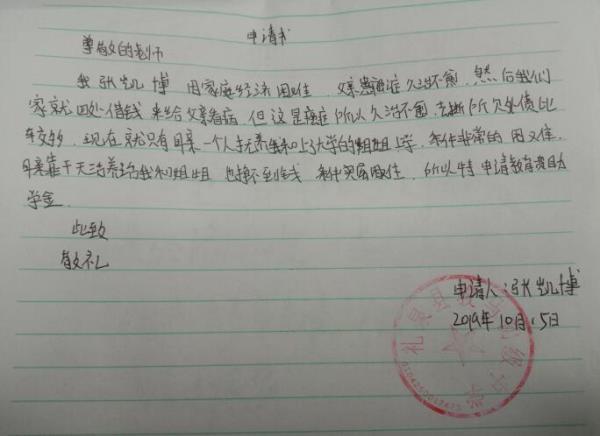 申请书
尊敬的老师
我张凯博 因家庭经济困难 父亲患癌症久治不愈 然后我们
家就四处借钱来给父亲看病 但这是癌症所以久治不愈 去断所欠外债比
较多 现在就只有母亲一个人抚养我和上大学的姐姐上学 条件非常的困难
母亲靠干天活养活我和姐姐 也挣不到钱 条件实属困难 所以特申请教育资助
学金
此致
敬礼
申请人:张凯博
2019年10月15日